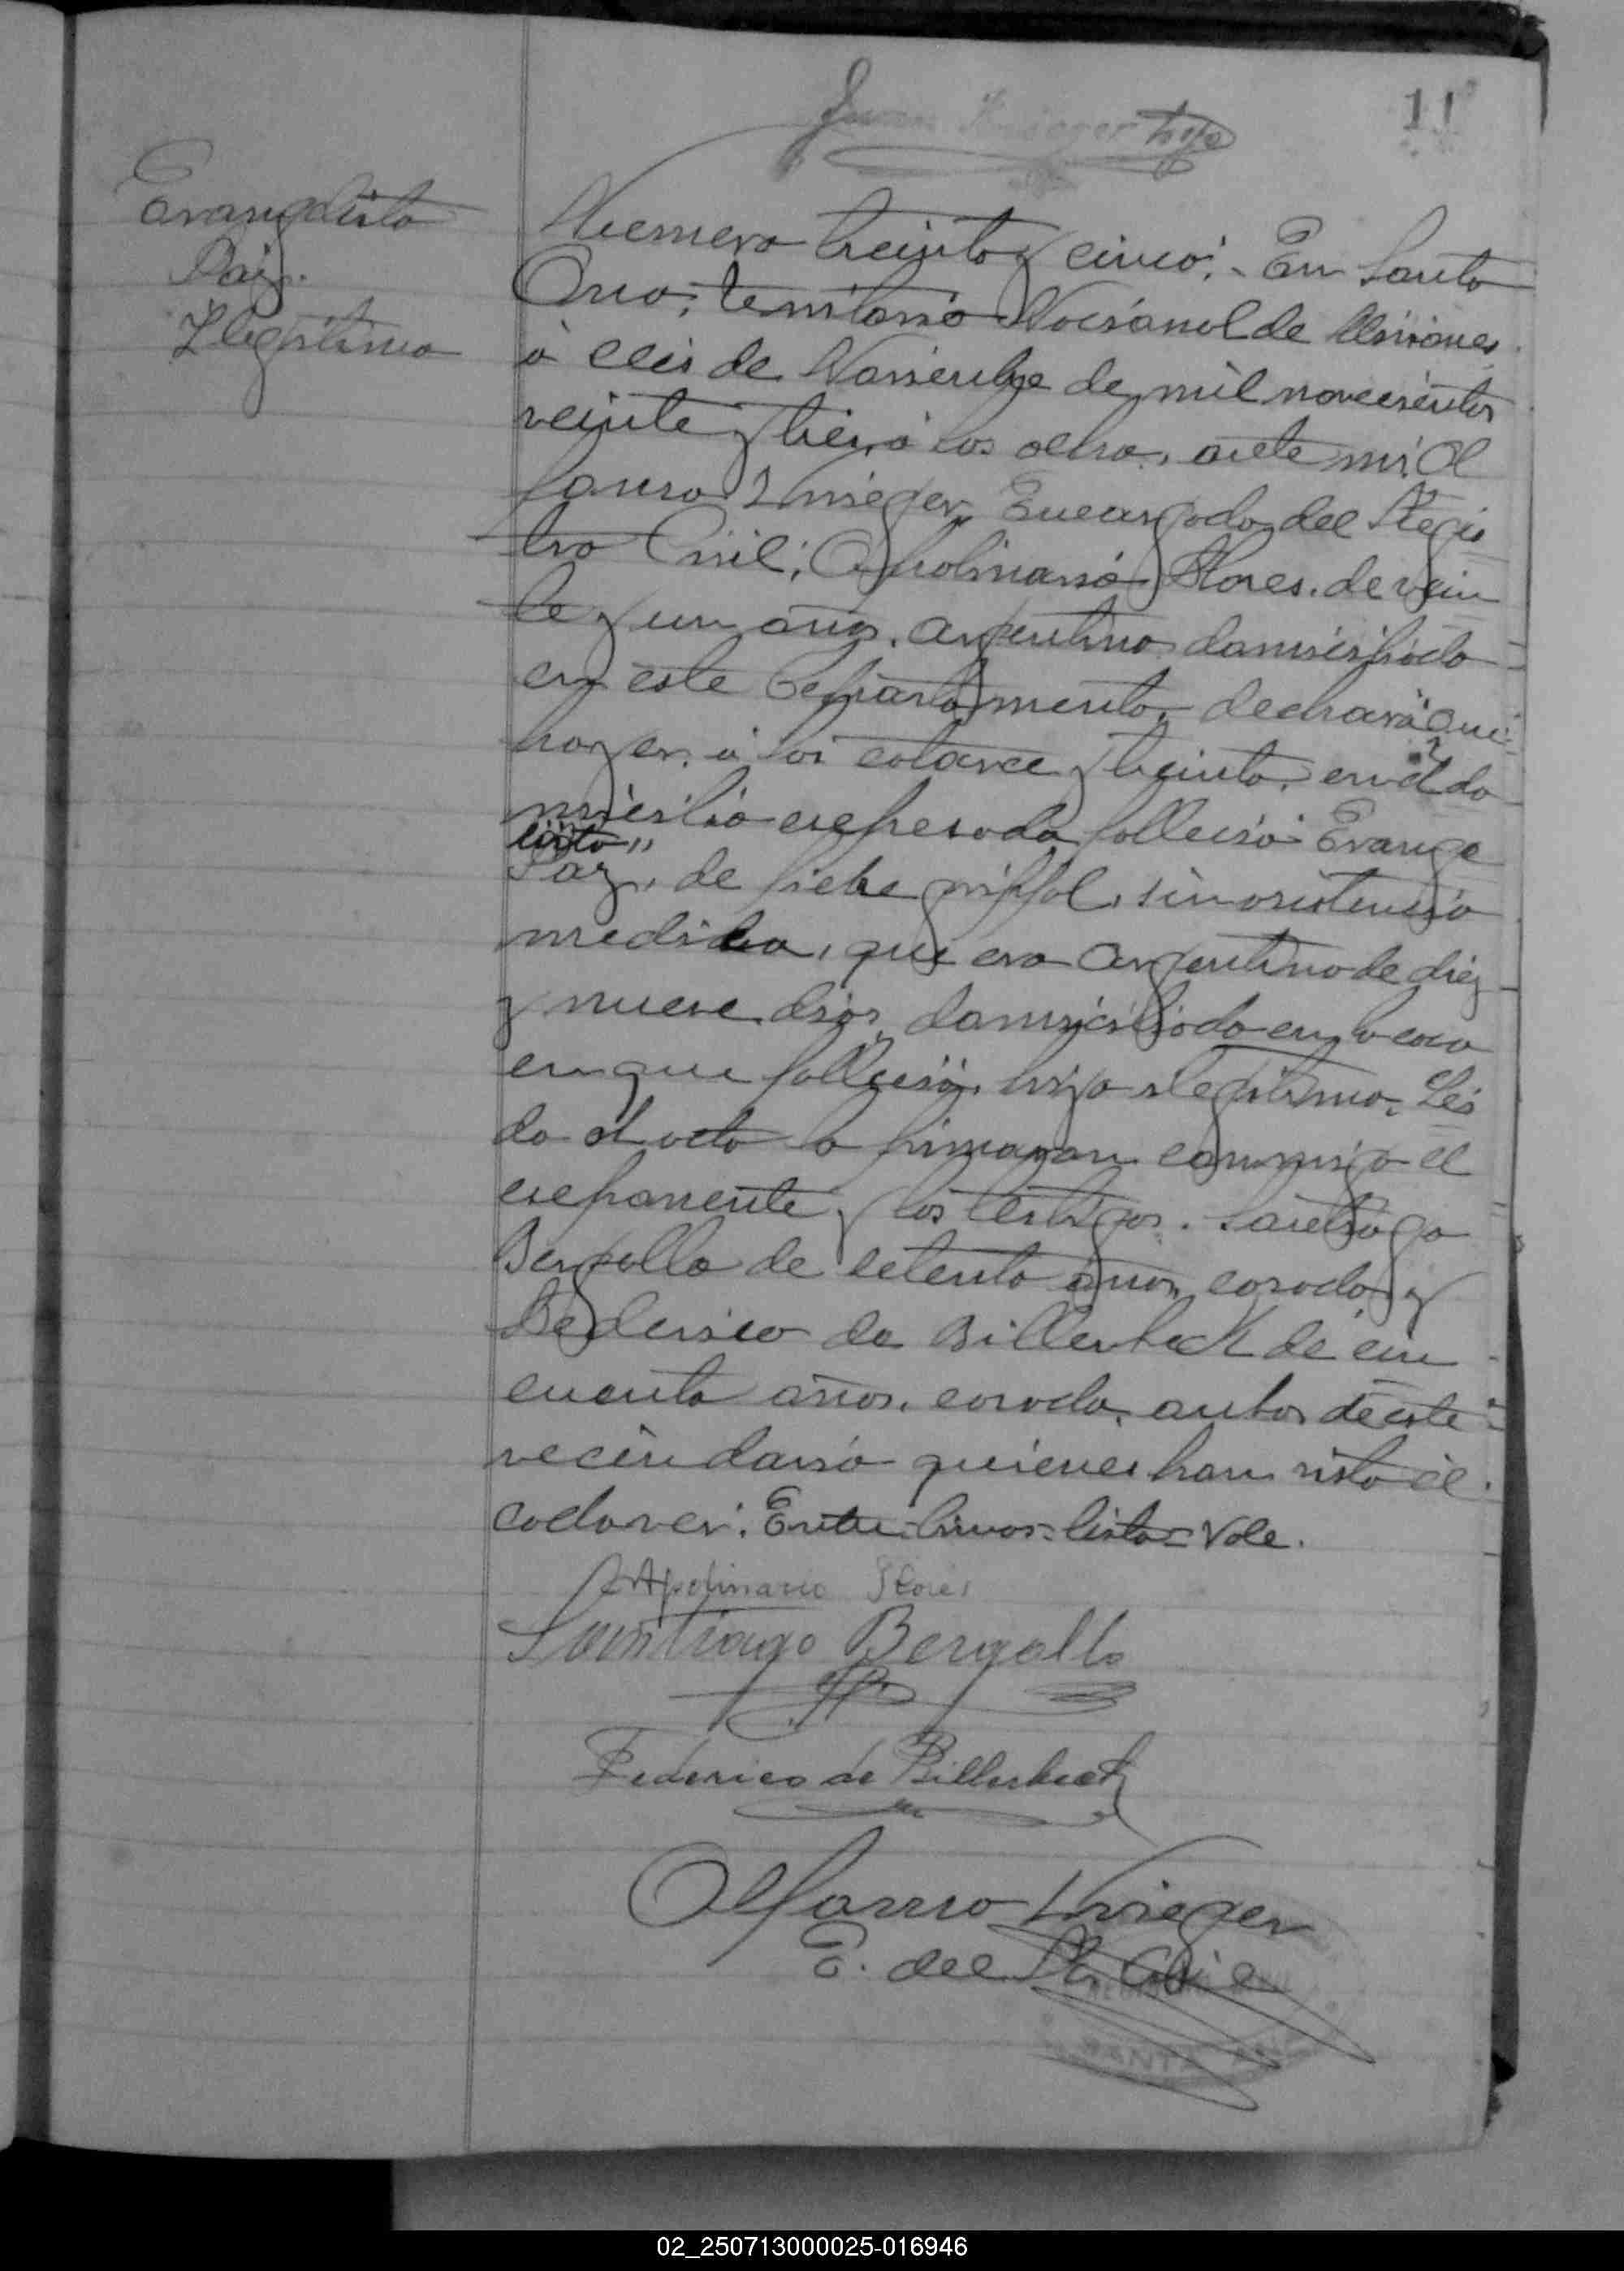 11
Juan Krieger hijo
Evangelista
Paz.
Ilegitimo
Numero treinta y cinco: En Santa
Ana, territorio Nacional de Misiones
á seis de Noviembre de mil novecientos
veinte y tres, á las ocho, ante mi, Al
fonso Krieger, Encargado del Regis
tro Civil; Apolinario Flores, de vein
te y un años, argentino domiciliado
en este Departamento, declaró que:
hoy á las catorce y treinta, en el do
micilio expresado falleció Evange
lista"
Paz, de fiebre grippal, sin asistencia
medica, que era argentino de diez
y nueve dias, domiciliado en la casa
en que falleció, hijo ilegitimo. Leí
do el acta la firmaron conmigo el
exponente y los testigos. Santiago
Bergallo de setenta años, casado y
Federico de Billerbeck de cin
cuenta años, casado, ambos de este
vecindario quienes han visto el
cadaver. Entre lineas=lista=Vale.
Apolinario Flores
Santiago Bergallo
Federico de Billerbeck
Alfonso Krieger
E. del R. Civil
SANTA ANA
02_250713000025-016946